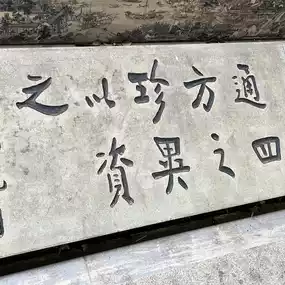 通四
方之
珍異
以資
之